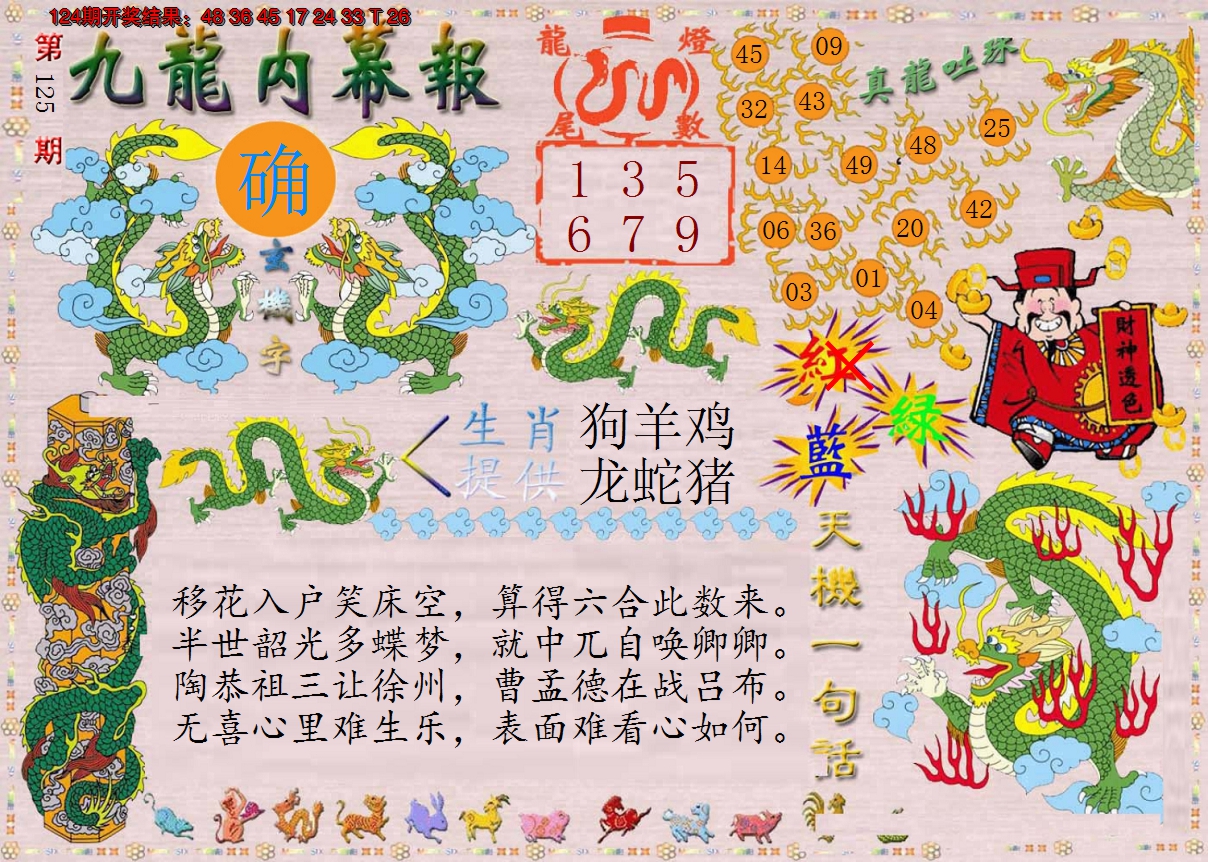 124期开奖结果：48 36 45 17 24 33 T 26
第125期
九龍内幕報
确
玄機字
龍燈
尾數
1 3 5
6 7 9
真龍吐珠
45 09
32 43
14 49 48 25
06 36 20 42
03 01 04
紅
綠
藍
財神透色
生肖提供
狗羊鸡
龙蛇猪
天機一句话
移花入户笑床空，算得六合此数来。
半世韶光多蝶梦，就中兀自唤卿卿。
陶恭祖三让徐州，曹孟德在战吕布。
无喜心里难生乐，表面难看心如何。